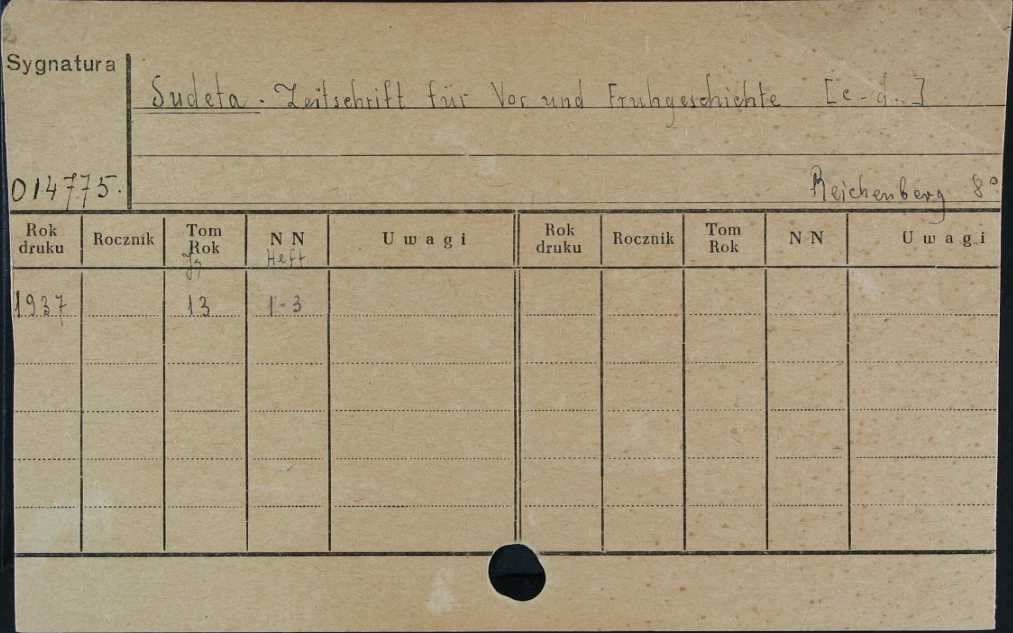 Sygnatura
Sudeta. Zeitschrift für Vor und Fruhgeschichte [c.d.]
014775.
Reichenberg 8°
Rok druku Rocznik Tom Rok N N Uwagi Rok druku Rocznik Tom Rok N N Uwagi
Jg Heft
1937 13 1-3